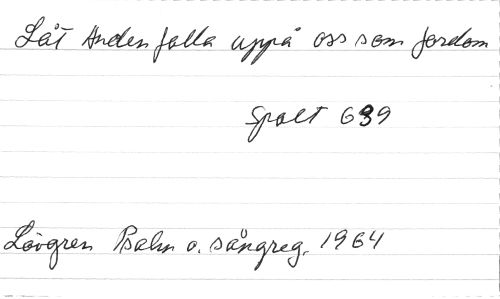 Låt Anden falla uppå oss som fordom
Spalt 639
Lövgren Psalm o. sångreg. 1964